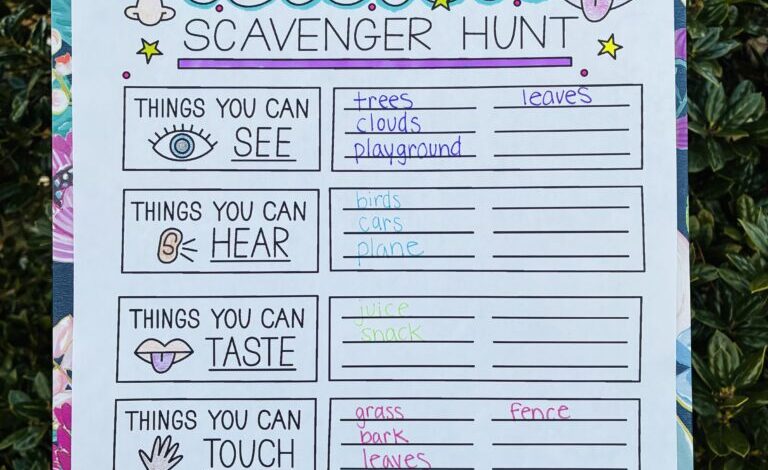 SCAVENGER HUNT
THINGS YOU CAN
SEE
trees leaves
clouds
playground
THINGS YOU CAN
HEAR
birds
cars
plane
THINGS YOU CAN
TASTE
juice
snack
THINGS YOU CAN
TOUCH
grass fence
bark
leaves